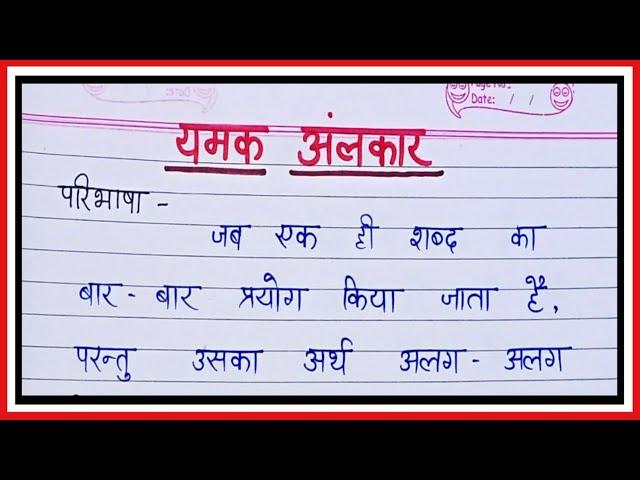 Page No.
Date: / /
यमक अंलकार
परिभाषा -
जब एक ही शब्द का
बार - बार प्रयोग किया जाता है,
परन्तु उसका अर्थ अलग - अलग